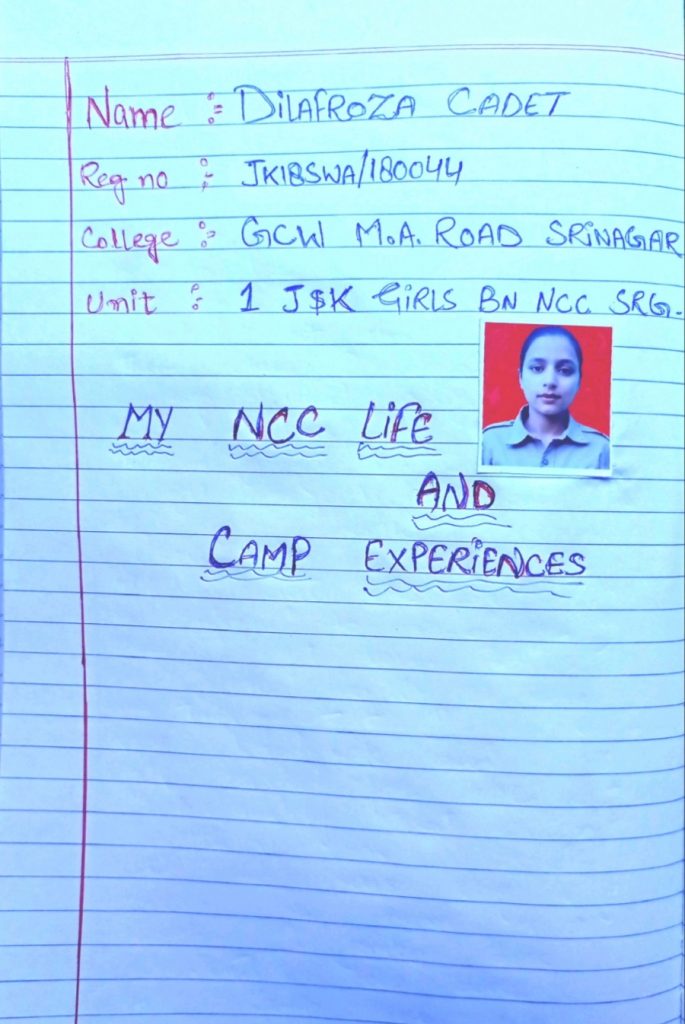 Name :- DiLAFROZA CADET
Reg no :- JK18SWA/180044
College :- GCW M.A. ROAD SRiNAGAR
Unit :- 1 J$K GiRLS BN NCC SRG.
MY NCC LiFE
AND
CAMP EXPERiENCES